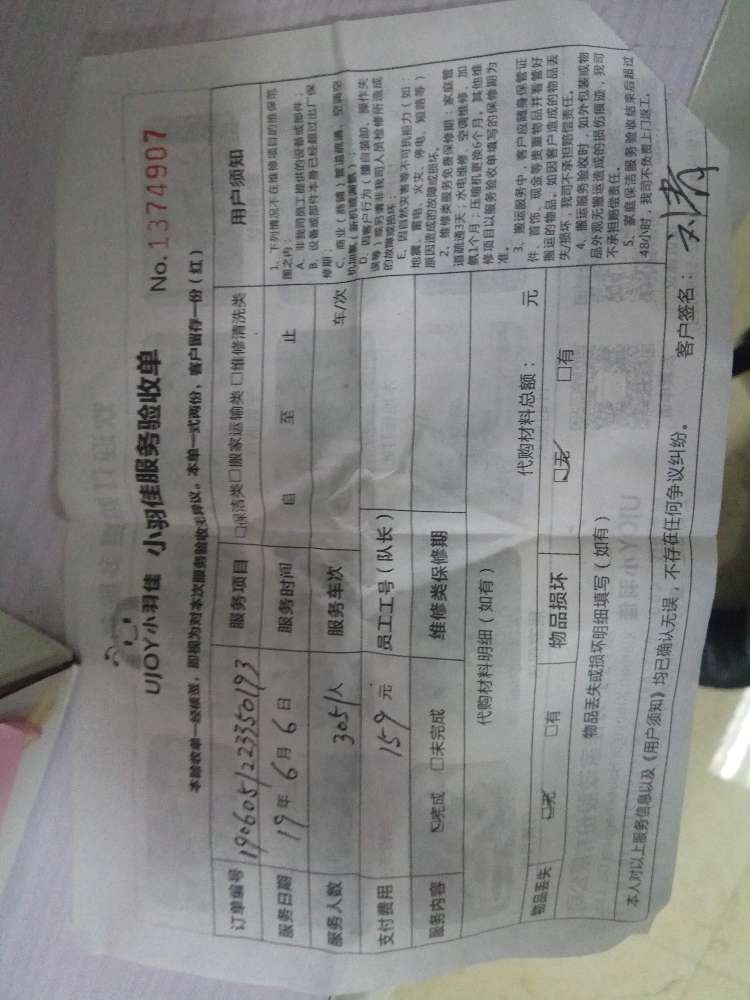 UJOY小羽佳 小羽佳服务验收单
No. 1374907
本验收单一经核签，即视为对本次服务验收无异议。本单一式两份，客户留存一份（红）
订单编号 190605122350193
服务项目 □保洁类□搬家运输类 □维修清洗类
服务日期 19 年 6 月 6 日
服务时间 自 至 止
服务人数 3051人
服务车次 车/次
支付费用 159 元
员工工号（队长）
服务内容 ☑完成 □未完成
维修类保修期
代购材料明细（如有）
代购材料总额： 元
物品丢失 ☑无 □有
物品损坏 ☑无 □有
物品丢失或损坏明细填写（如有）
用户须知
1、下列情况不在维修项目的维保范
围之内：
A、非我司员工提供的设备或部件；
B、设备或部件本身已经超过出厂保
修期；
C、商业（商铺）管道疏通、空调空
D、因客户行为（擅自装卸、操作失
误等）或另请非我司人员检修所造成
的故障或损坏；
E、因自然灾害等不可抗拒力（如：
地震、雷电、火灾、停电、短路等）
原因造成的故障或损坏。
2、维修类服务免费保修期：家庭管
道疏通3天；水电维修、空调维修、加
氟1个月；压缩机更换6个月，其他维
修项目以服务验收单填写的保修期为
准。
3、搬运服务中，客户应随身保管证
件、首饰、现金等贵重物品并看管好
搬运的物品，如因客户造成的物品丢
失/损坏，我司不承担赔偿责任。
4、搬运服务验收时，如外包装或物
品外观无搬运造成的损伤痕迹，我司
不承担赔偿责任。
5、家庭保洁服务验收结束后超过
48小时，我司不负责上门返工。
本人对以上服务信息以及《用户须知》均已确认无误，不存在任何争议纠纷。
客户签名：